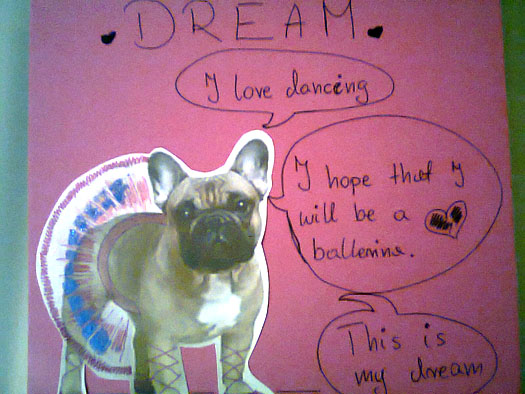 DREAM
I love dancing
I hope that I
will be a
ballerina.
This is
my dream